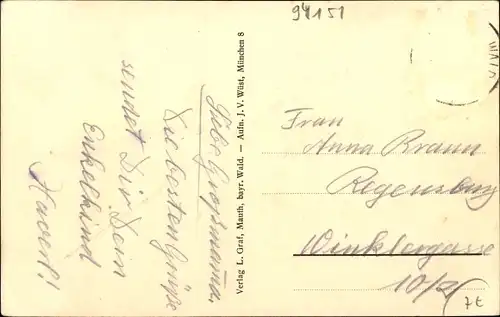 94151
Liebe Großmama,
die besten Grüße
sendet Dir Dein
Enkelkind
Verlag L. Graf, Mauth, bayr. Wald. — Aufn. J. V. Wüst, München 8
Frau
Anna Braun
Regensburg
Winklergasse
7E